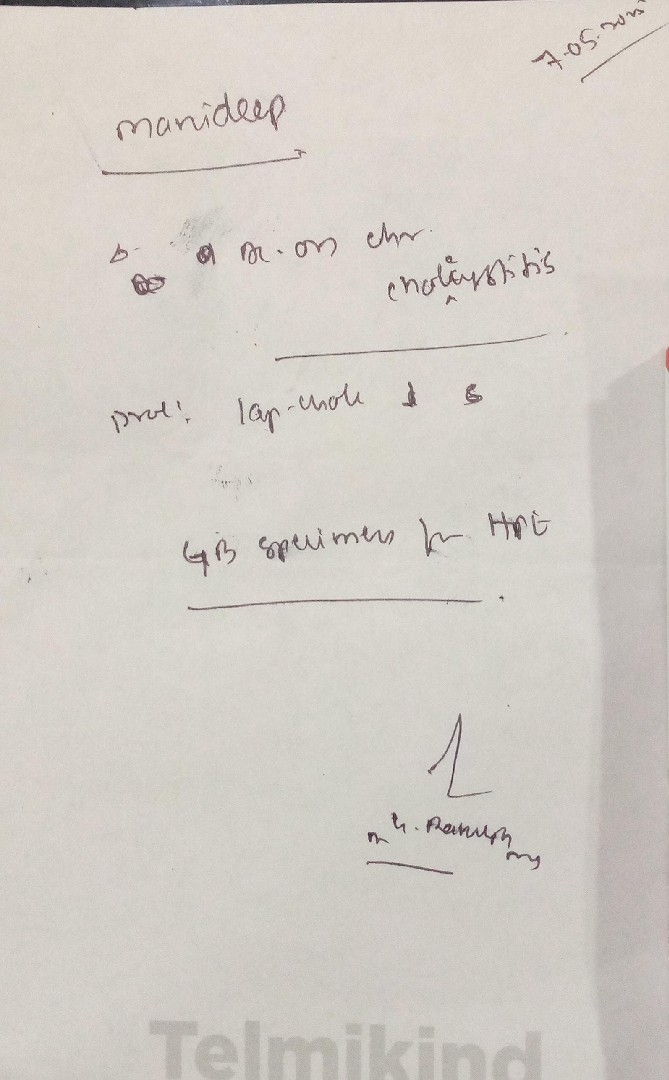 7.05.2025
Manideep
Ac. on chr.
cholecystitis
Proc: lap-chole
GB specimen for HPE
Telmikind